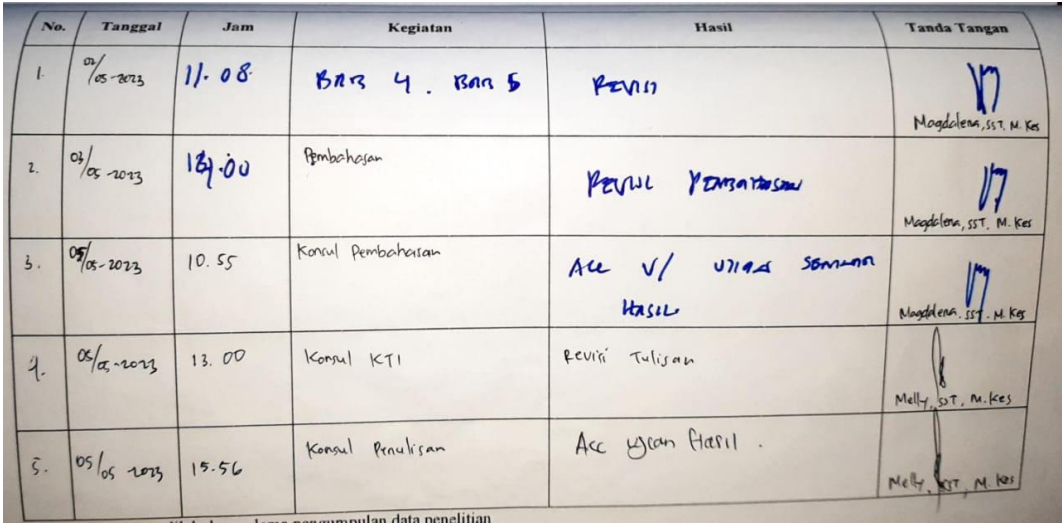 No. Tanggal Jam Kegiatan Hasil Tanda Tangan
1. 02/05-2023 11.08 BAB 4. BAB 5 REVISI
Magdalena, SST. M. Kes
2. 03/05-2023 .00 Pembahasan PEMBAHASAN
Magdalena, SST. M. Kes
3. 05/05-2023 10.55 Konsul Pembahasan ACC U/ UJIAN SEMINAR
HASIL
Magdalena. SST. M. Kes
4. 05/05-2023 13.00 Konsul KTI Revisi Tulisan
Melly, SST, M.Kes
5. 05/05 2023 15.56 Konsul Penulisan Acc Ujian Hasil.
Melly, SST, M. Kes
pengumpulan data penelitian